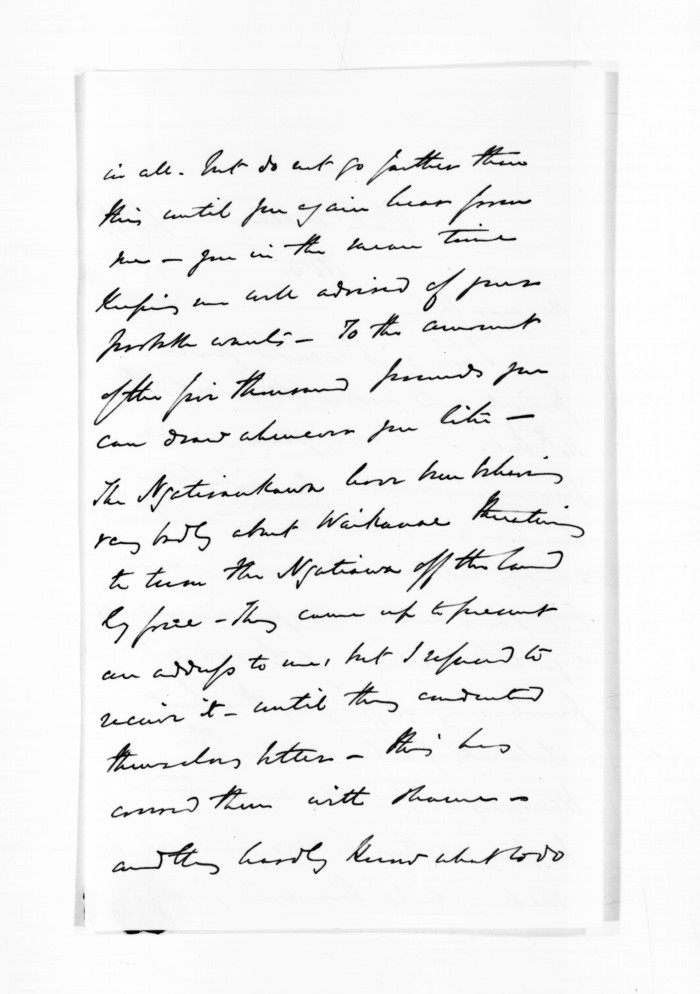 in all. but do not go further than
this until you again hear from
me – you in the mean time
Keeping me well advised of your
probable wants – To the amount
of the five thousand pounds you
can draw whenever you like –
The Ngatiraukawa have been behaving
very badly about Waikanae threatening
to turn the Ngatiawa off the land
by force – They came up to present
an address to me, but I refused to
receive it – until they conducted
themselves better – this has
covered them with shame –
and they hardly Know what to do